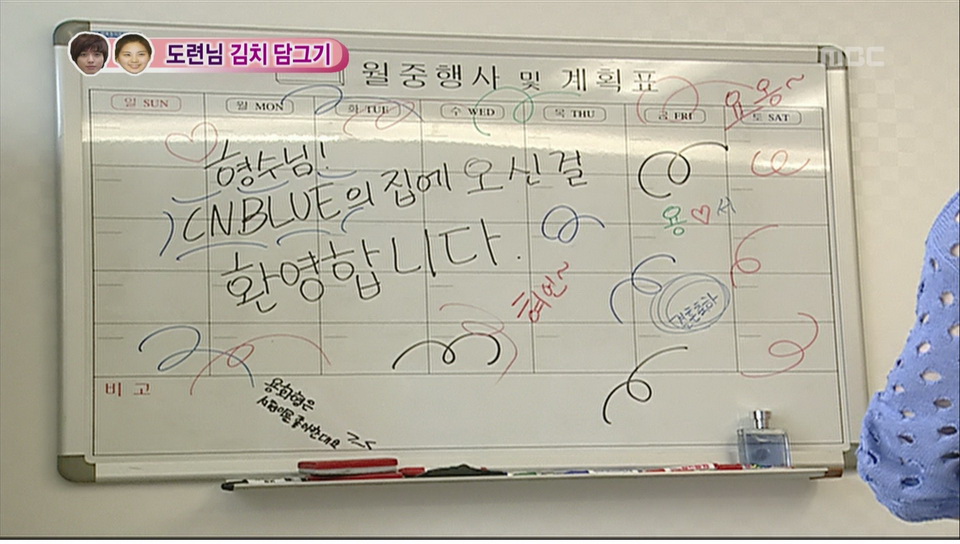 도련님 김치 담그기
MBC
월중행사 및 계획표
일 SUN 월 MON 화 TUE 수 WED 목 THU 금 FRI 토 SAT
요용~
형수님!
CNBLUE의 집에 오신걸
환영합니다.
용♡서
형번~
결혼축하
비고
용화형은